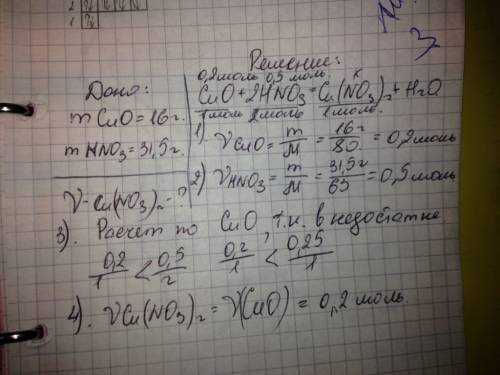 Решение:
Дано:
m CuO = 16 г.
m HNO3 = 31,5 г.
ν - Cu(NO3)2 - ?
0,2моль 0,5 моль x
CuO + 2HNO3 = Cu(NO3)2 + H2O
1моль 2моль 1моль.
1) νCuO = m/M = 16г/80 = 0,2моль
2) νHNO3 = m/M = 31,5г/63 = 0,5 моль
3). Расчет по CuO, т.к. в недостатке
0,2/1 < 0,5/2 0,2/1 < 0,25/1
4). νCu(NO3)2 = ν(CuO) = 0,2 моль.
3